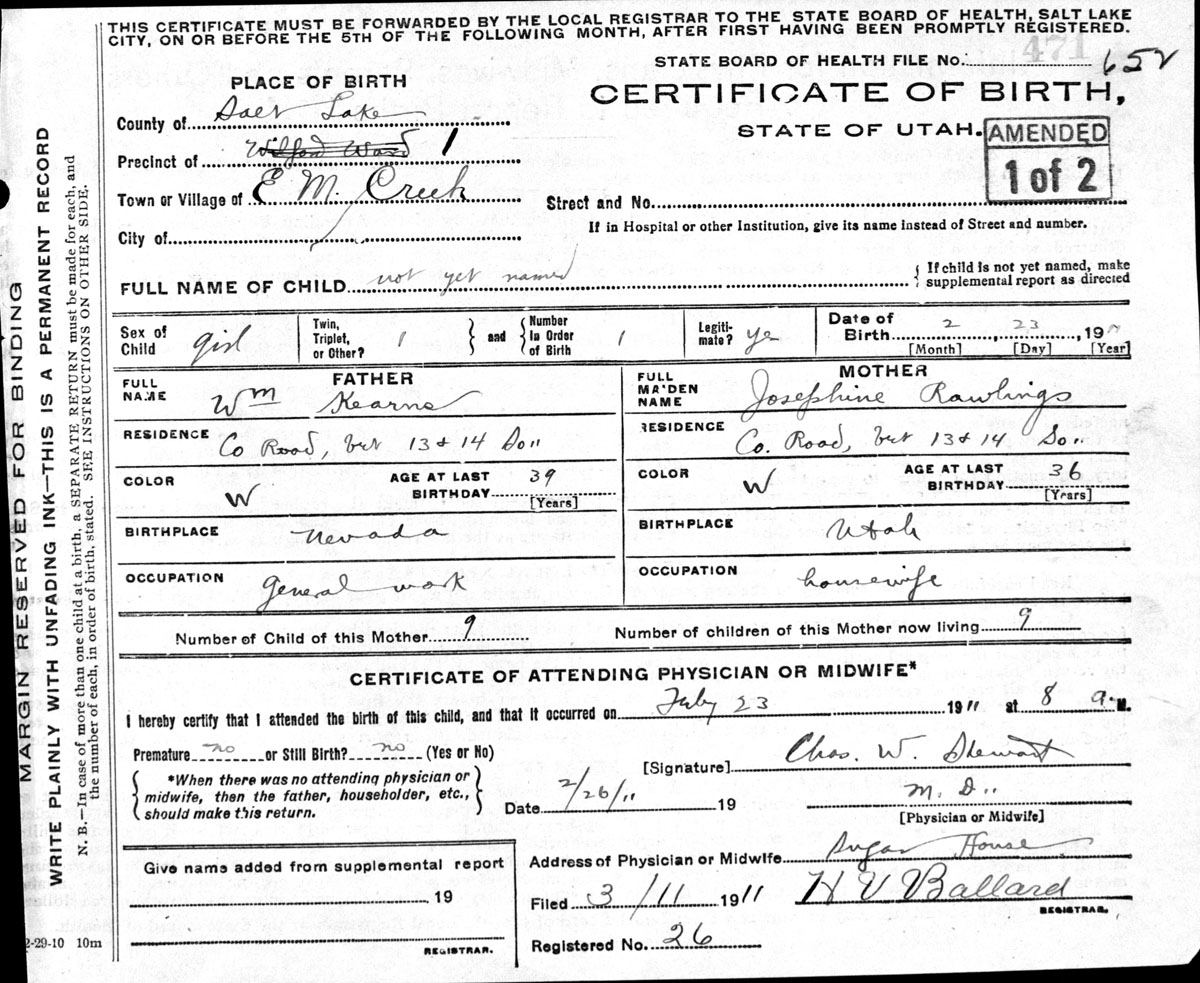 THIS CERTIFICATE MUST BE FORWARDED BY THE LOCAL REGISTRAR TO THE STATE BOARD OF HEALTH, SALT LAKE
CITY, ON OR BEFORE THE 5TH OF THE FOLLOWING MONTH, AFTER FIRST HAVING BEEN PROMPTLY REGISTERED.
471
STATE BOARD OF HEALTH FILE No. 652
PLACE OF BIRTH
CERTIFICATE OF BIRTH,
STATE OF UTAH.
AMENDED
1 of 2
County of Salt Lake
Precinct of Wilford Ward 1
Town or Village of E M. Creek
Street and No.
If in Hospital or other Institution, give its name instead of Street and number.
City of
FULL NAME OF CHILD not yet named
{ If child is not yet named, make
supplemental report as directed
Sex of
Child girl
Twin,
Triplet,
or Other? 1
and
Number
in Order
of Birth 1
Legiti-
mate? yes
Date of
Birth 2 , 23 , 19 11
[Month] [Day] [Year]
FATHER
FULL
NAME Wm Kearns
RESIDENCE Co Road, bet 13 & 14 So"
COLOR W
AGE AT LAST
BIRTHDAY 39
[Years]
BIRTHPLACE nevada
OCCUPATION general work
MOTHER
FULL
MAIDEN
NAME Josephine Rawlings
RESIDENCE Co. Road, bet 13 & 14 So"
COLOR W
AGE AT LAST
BIRTHDAY 36
[Years]
BIRTHPLACE Utah
OCCUPATION housewife
Number of Child of this Mother 9
Number of children of this Mother now living 9
CERTIFICATE OF ATTENDING PHYSICIAN OR MIDWIFE*
I hereby certify that I attended the birth of this child, and that it occurred on Feby 23 1911 at 8 a. M.
Premature no or Still Birth? no (Yes or No)
[Signature] Chas. W. Stewart
*When there was no attending physician or
midwife, then the father, householder, etc.,
should make this return.
Date 2/26/11 19
M. D"
[Physician or Midwife]
Give name added from supplemental report
19
REGISTRAR.
Address of Physician or Midwife Sugar House
Filed 3/11 1911
H V Ballard
REGISTRAR.
Registered No. 26
2-29-10 10m
MARGIN RESERVED FOR BINDING
WRITE PLAINLY WITH UNFADING INK—THIS IS A PERMANENT RECORD
N. B.—In case of more than one child at a birth, a SEPARATE RETURN must be made for each, and
the number of each, in order of birth, stated. SEE INSTRUCTIONS ON OTHER SIDE.